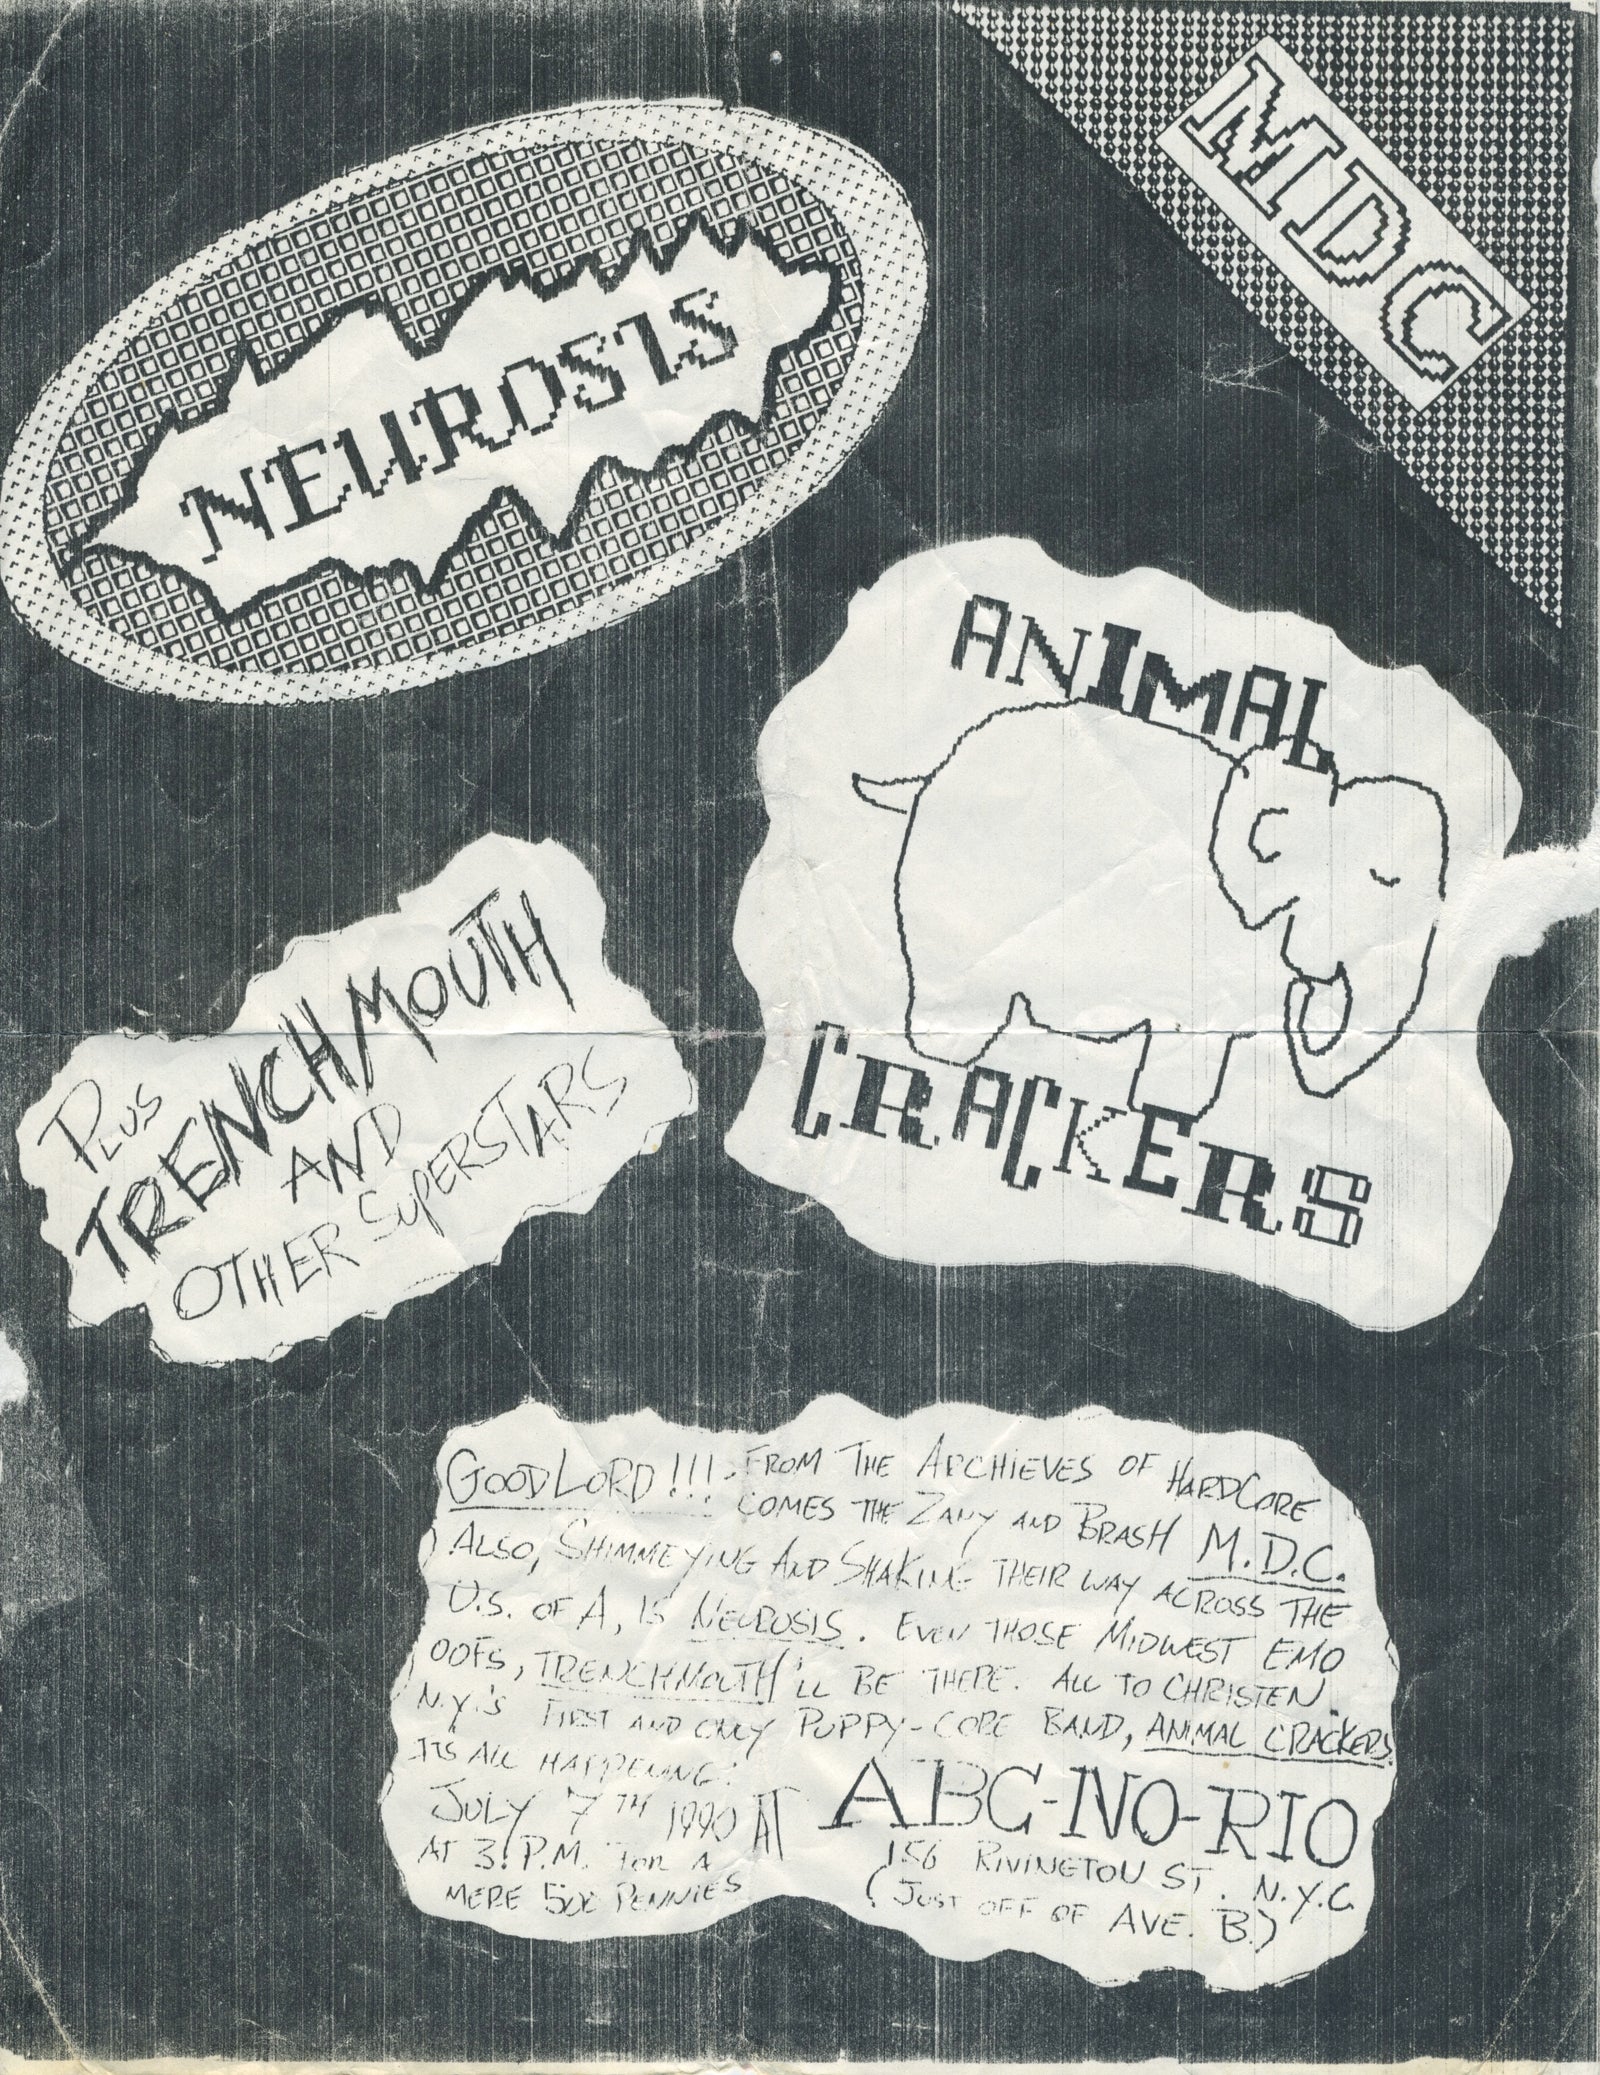 MDC
NEUROSIS
ANIMAL
CRACKERS
PLUS
TRENCHMOUTH
AND
OTHER SUPERSTARS
GOOD LORD!!! FROM THE ARCHIEVES OF HARDCORE
COMES THE ZANY AND BRASH M.D.C.
ALSO, SHIMMEYING AND SHAKING THEIR WAY ACROSS THE
U.S. OF A, IS NEUROSIS. EVEN THOSE MIDWEST EMO
OOFS, TRENCHMOUTH'LL BE THERE. ALL TO CHRISTEN
N.Y.'S FIRST AND ONLY PUPPY-CORE BAND, ANIMAL CRACKERS
ITS ALL HAPPENING:
JULY 7TH 1990 AT ABC-NO-RIO
AT 3 P.M. FOR A
MERE PENNIES
156 RIVINGTON ST. N.Y.C.
(JUST OFF OF AVE. B.)